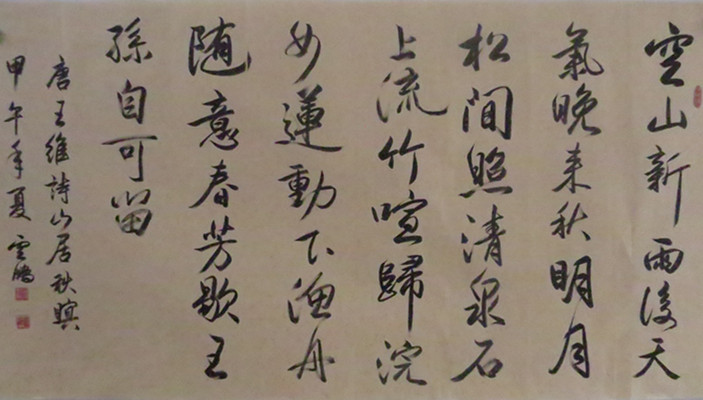 空山新雨後天
氣晚来秋明月
松間照清泉石
上流竹喧歸浣
女蓮動下渔舟
随意春芳歇王
孫自可留
唐王維詩山居秋暝
甲午年夏 雲鵬